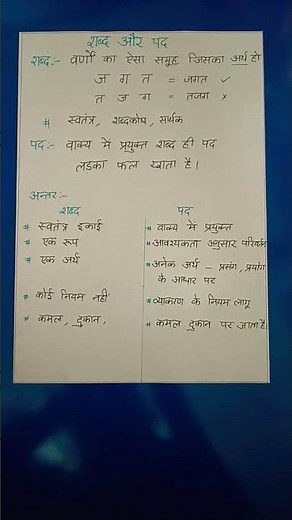 शब्द और पद
शब्द:- वर्णों का ऐसा समूह जिसका अर्थ हो
ज ग त = जगत ✓
त ज ग = तजग ×
# स्वतंत्र, शब्दकोष, सार्थक
पद:- वाक्य में प्रयुक्त शब्द ही पद
लड़का फल खाता है।
अन्तर:-
शब्द
* स्वतंत्र इकाई
* एक रूप
* एक अर्थ
* कोई नियम नहीं
* कमल, दुकान,
पद
* वाक्य में प्रयुक्त
* आवश्यकता अनुसार परिवर्तन
* अनेक अर्थ – प्रसंग, प्रयोग
के आधार पर
* व्याकरण के नियम लागू
* कमल दुकान पर जाता है।